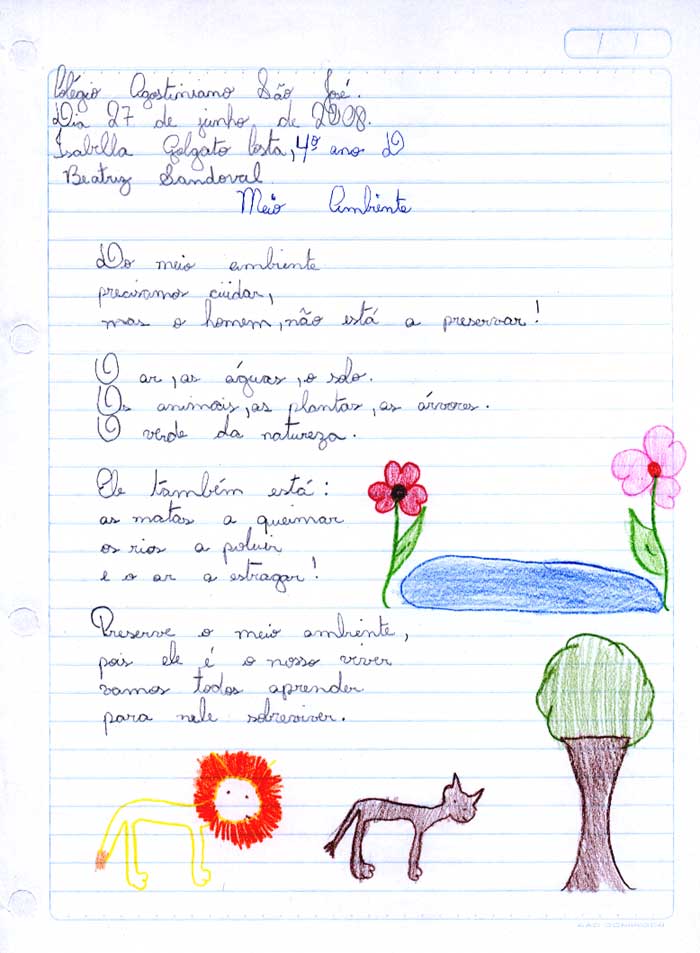 Colégio Agostiniano São José.
Dia 27 de junho de 2008.
Isabella Golgato Costa, 4º ano D
Beatriz Sandoval
Meio Ambiente
Do meio ambiente
precisamos cuidar,
mas o homem, não está a preservar!
O ar, as águas, o solo.
Os animais, as plantas, as árvores.
O verde da natureza.
Ele também está:
as matas a queimar
os rios a poluir
e o ar a estragar!
Preserve o meio ambiente,
pois ele é o nosso viver
vamos todos aprender
para nele sobreviver.
SÃO DOMINGOS